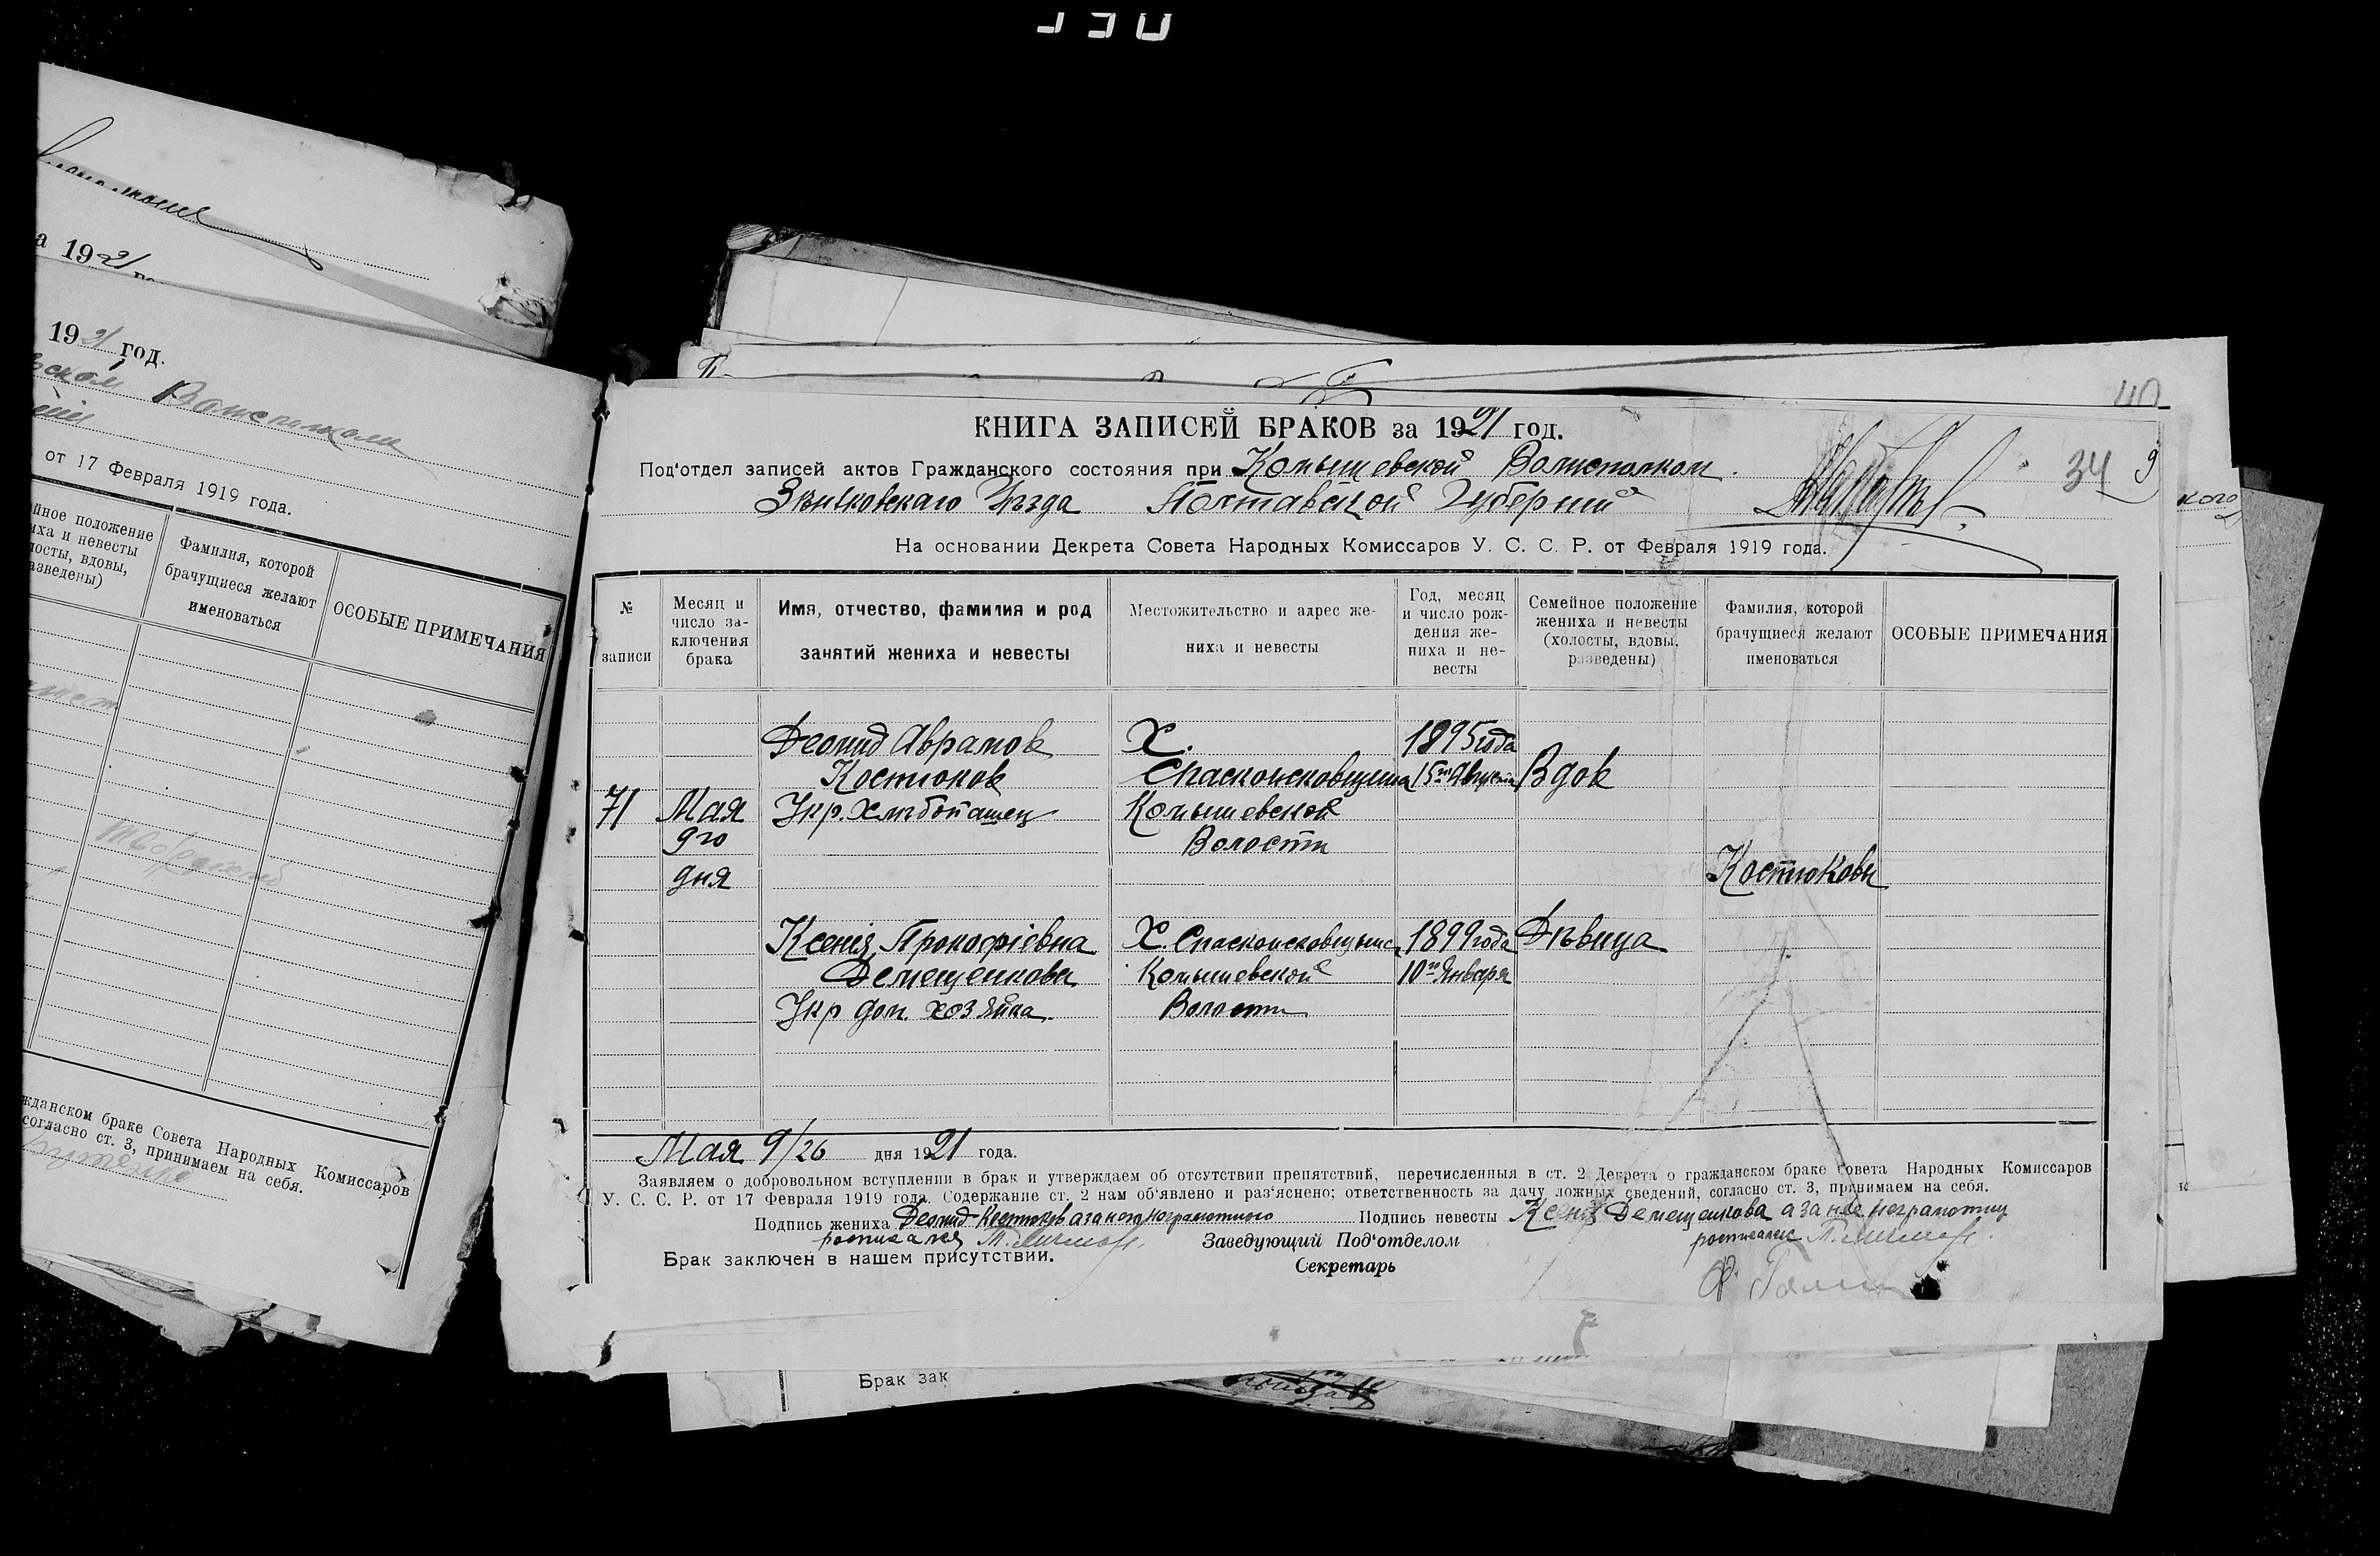 а 1921 го
1921 год.
вском Волисполкоми
от 17 Февраля 1919 года.
йное положение
иха и невесты
лосты, вдовы,
азведены)
Фамилия, которой
брачущиеся желают
именоваться
ОСОБЫЕ ПРИМЕЧАНИЯ
жданском браке Совета Народных Комиссаров
согласно ст. 3, принимаем на себя.
40
КНИГА ЗАПИСЕЙ БРАКОВ за 1921 год.
Под'отдел записей актов Гражданского состояния при Комышевской Волисполком.
34 9
Зѣньковскаго Уѣзда Полтавской Губернии
кого
На основании Декрета Совета Народных Комиссаров У. С. С. Р. от Февраля 1919 года.
№
записи
Месяц и
число за-
ключения
брака
Имя, отчество, фамилия и род
занятий жениха и невесты
Местожительство и адрес же-
ниха и невесты
Год, месяц
и число рож-
дения же-
ниха и не-
весты
Семейное положение
жениха и невесты
(холосты, вдовы,
разведены)
Фамилия, которой
брачущиеся желают
именоваться
ОСОБЫЕ ПРИМЕЧАНИЯ
Деомид Аврамов Х. 1895 года
Костюков 15го Августа Вдов
71 Мая Укр. Хлѣбопашец Комышевской
9го Волости
дня Костюковы
Ксенія Прокофіевна Х. 1899 года Дѣвица
Демещенкова Комышевской 10го Января
Укр дом. хозяйка. Волости
Мая 9/26 дня 1921 года.
Заявляем о добровольном вступлении в брак и утверждаем об отсутствии препятствий, перечисленныя в ст. 2 Декрета о гражданском браке Совета Народных Комиссаров
У. С. С. Р. от 17 Февраля 1919 года. Содержание ст. 2 нам об'явлено и раз'яснено; ответственность за дачу ложных сведений, согласно ст. 3, принимаем на себя.
Подпись жениха Деомид Костюков а за него неграмотного Подпись невесты Ксенія Демещенкова а за нее неграмотну
росписался Заведующий Под'отделом росписался
Брак заключен в нашем присутствии.
Секретарь
Брак зак